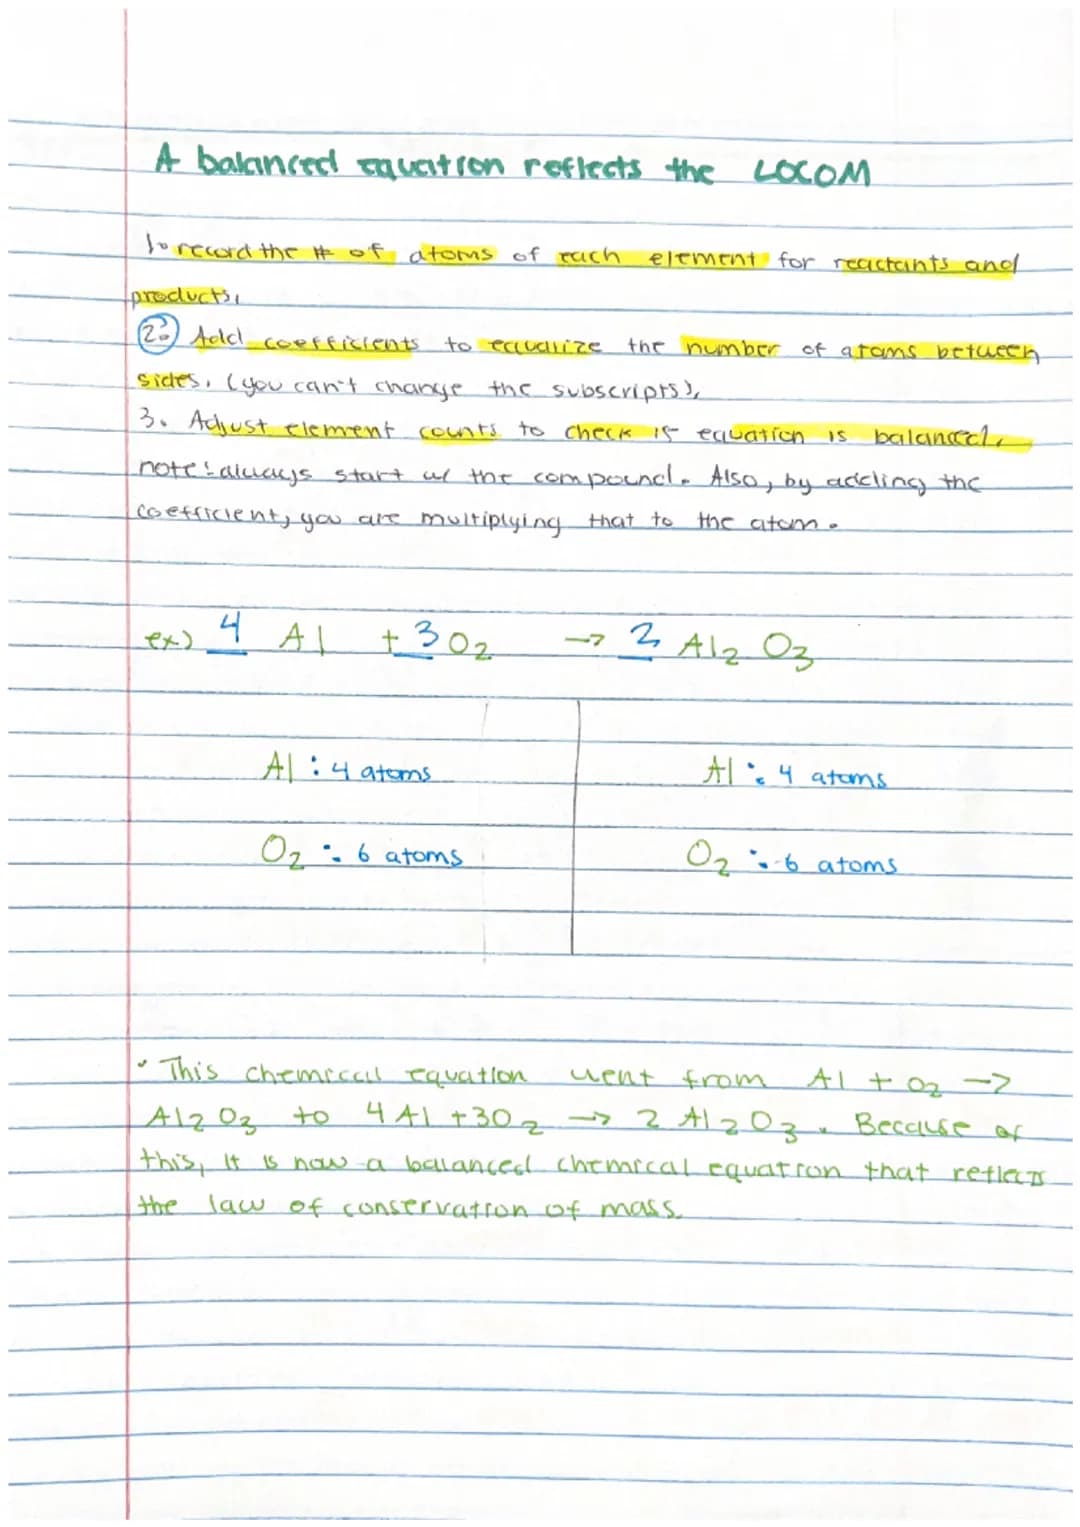 A balanced equation reflects the LOCOM
1. record the # of atoms of each element for reactants and
products.
2. Add coefficients to equalize the number of atoms between
sides. (you can't change the subscripts).
3. Adjust element counts to check is equation is balanced.
note: always start w/ the compound. Also, by adding the
coefficient, you are multiplying that to the atom.
ex) 4 Al + 3 O₂ → 2 Al₂O₃
Al : 4 atoms Al : 4 atoms
O₂ : 6 atoms O₂ : 6 atoms
• This chemical equation went from Al + O₂ →
Al₂O₃ to 4Al + 3O₂ → 2 Al₂O₃. Because of
this, it is now a balanced chemical equation that reflects
the law of conservation of mass.